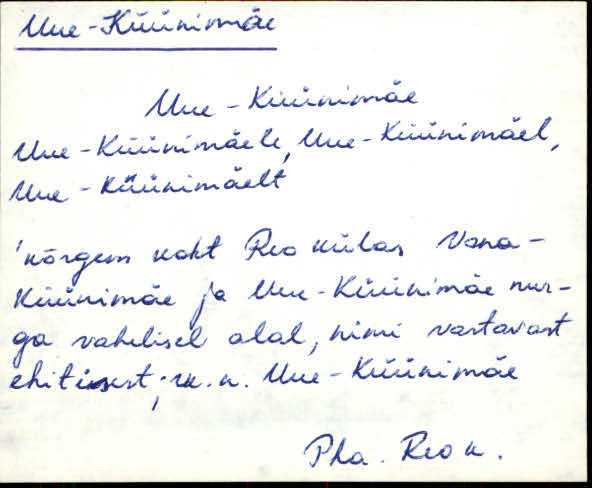 Uue-Küünimäe
Uue-Küünimäe
Uue-Küünimäele, Uue-Küünimäel,
Uue-Küünimäelt
'kõrgem koht Reo külas Vana-
Küünimäe ja Uue-Küünimäe nur-
ga vahelisel alal, nimi vastavast
ehitisest; ka. n. Uue-Küünimäe
Pha. Reo k.